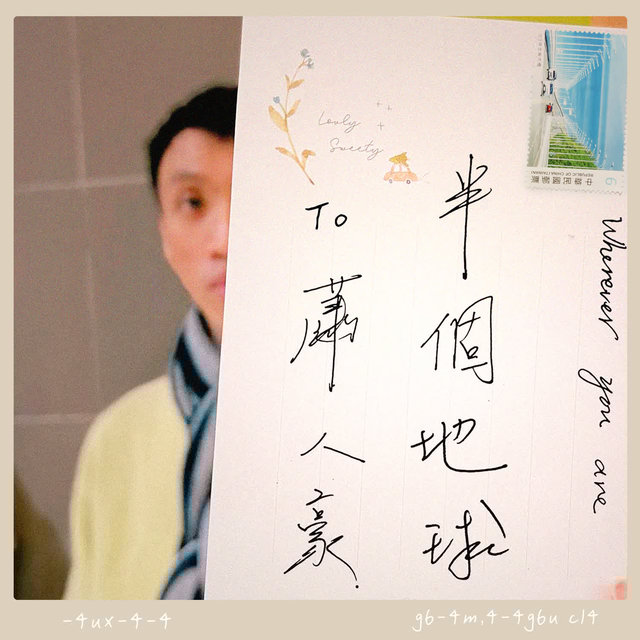 Lovly
Sweety
6
中華民國郵票
REPUBLIC OF CHINA (TAIWAN)
Wherever you are
半個地球
To 蕭人豪
-4ux-4-4
g6-4m,4-4g6u cl4